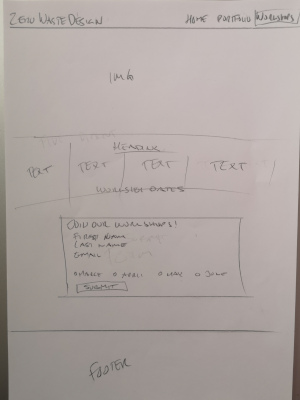 ZERO WASTE DESIGN
HOME PORTFOLIO WORKSHOPS
IMG
HEADER
TEXT TEXT TEXT TEXT
WORKSHOP DATES
JOIN OUR WORKSHOPS!
FIRST NAME
LAST NAME
EMAIL
MARCH APRIL MAY JUNE
SUBMIT
FOOTER